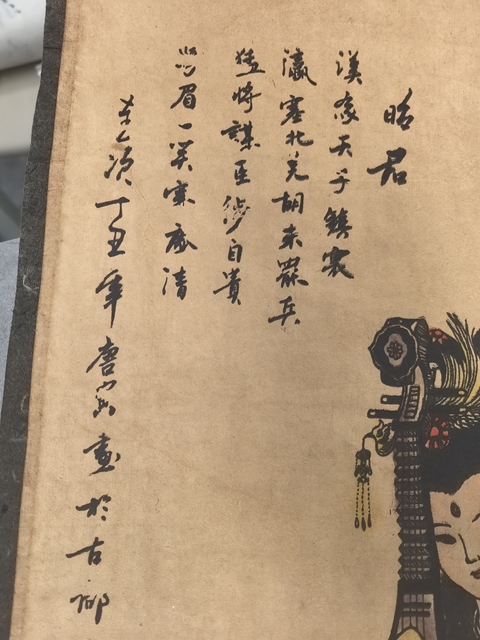 昭君
漢家天子鎮寰
瀛塞北羌胡未罷兵
猛將謀臣徒自貴
眉一笑塞塵清
次丁丑年唐寅畫於古